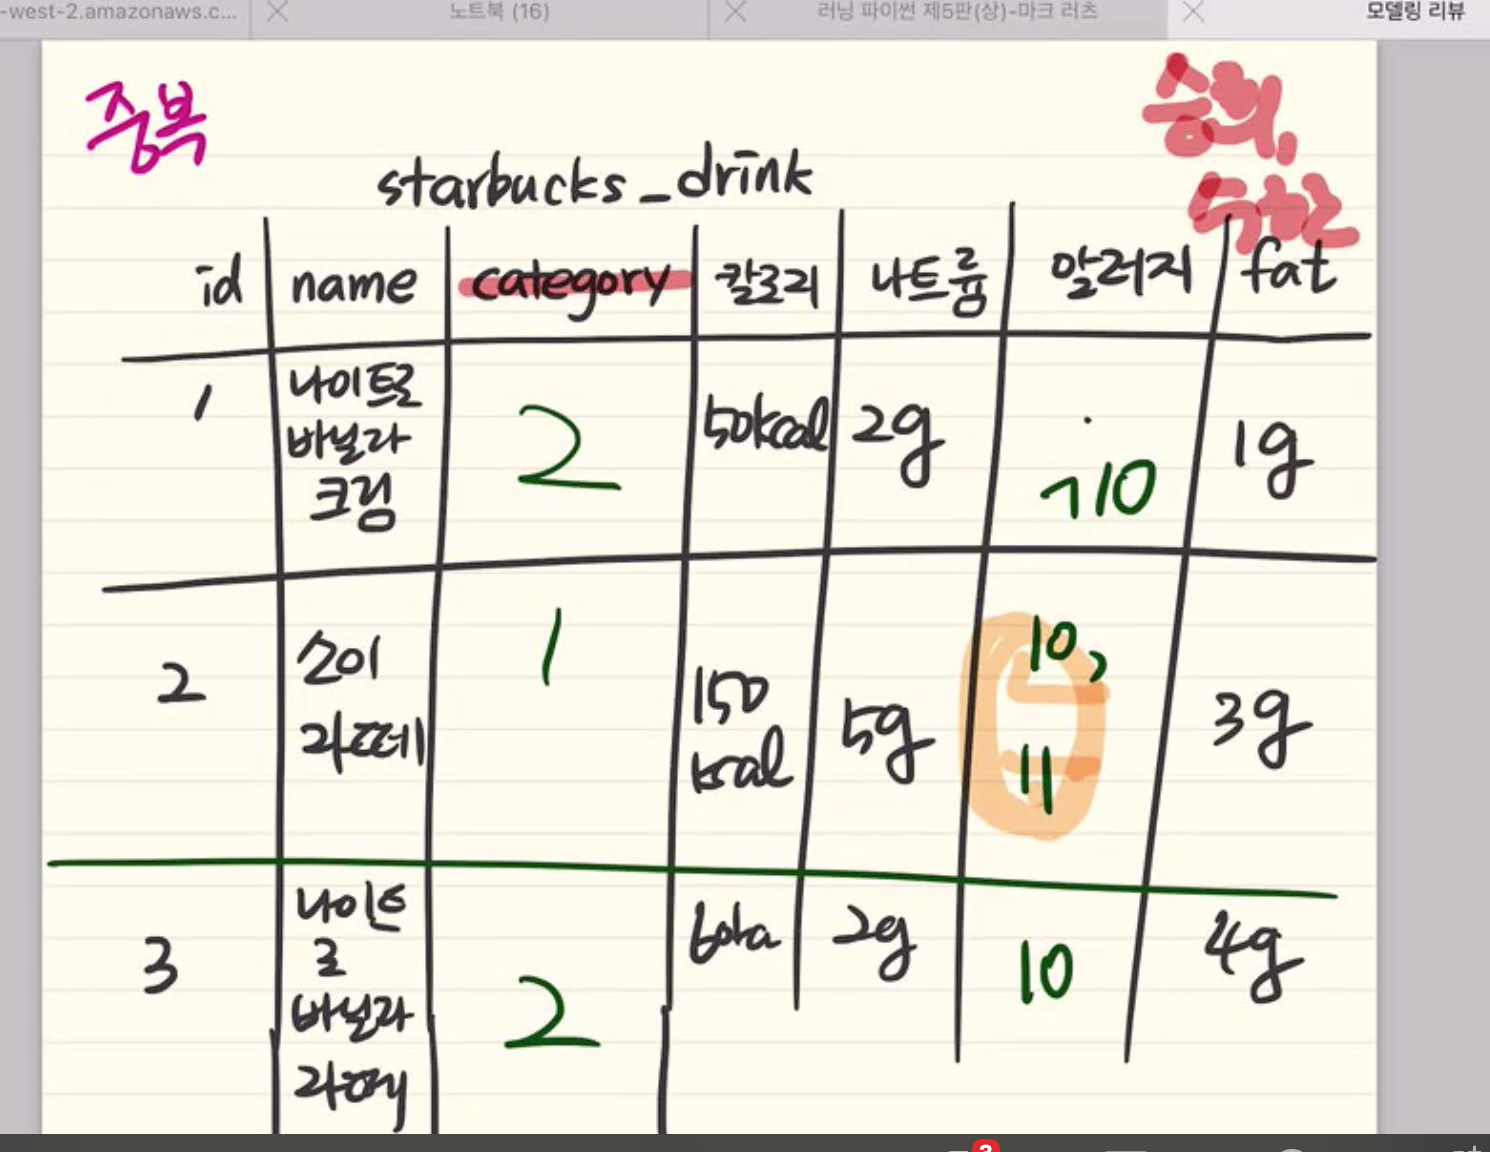 -west-2.amazonaws.c...
노트북 (16)
러닝 파이썬 제5판(상)-마크 러츠
모델링 리뷰
중복
승희,
starbucks_drink
id name category 칼로리 나트륨 알러지 fat
1 나이트로 바닐라 크림 2 50kcal 2g ㄱ10 1g
2 소이 라떼 1 150 kcal 5g 10, 11 3g
3 나이트로 바닐라 라떼 2 2g 10 4g
3